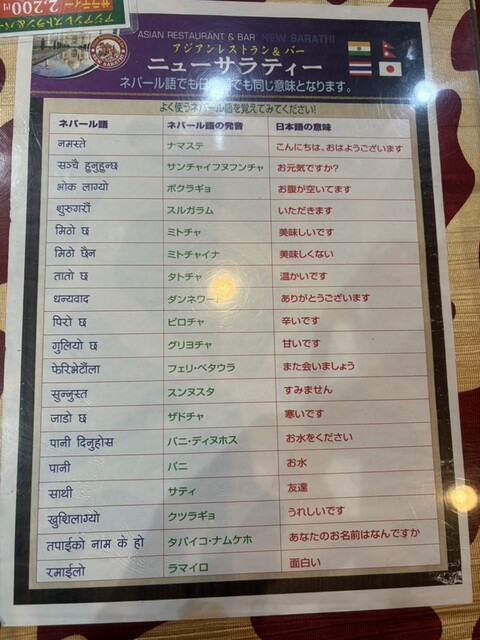 アジアンレストラン&バー
サラティー 2,200円
ASIAN RESTAURANT & BAR NEW SARATHI
アジアンレストラン & バー
ニューサラティー
ネパール語でも日本語でも同じ意味となります。
よく使うネパール語を覚えてみてください!
ネパール語 ネパール語の発音 日本語の意味
नमस्ते ナマステ こんにちは、おはようございます
सञ्चै हुनुहुन्छ サンチャイフヌフンチャ お元気ですか?
भोक लाग्यो ボクラギョ お腹が空いてます
शुरुगरौं スルガラム いただきます
मिठो छ ミトチャ 美味しいです
मिठो छैन ミトチャイナ 美味しくない
तातो छ タトチャ 温かいです
धन्यवाद ダンネワード ありがとうございます
पिरो छ ピロチャ 辛いです
गुलियो छ グリヨチャ 甘いです
फेरिभेटौंला フェリ・ベタウラ また会いましょう
सुन्नुस्त スンヌスタ すみません
जाडो छ ザドチャ 寒いです
पानी दिनुहोस パニ・ディヌホス お水をください
पानी パニ お水
साथी サティ 友達
खुशिलाग्यो クツラギョ うれしいです
तपाईको नाम के हो タパイコ・ナムケホ あなたのお名前はなんですか
रमाईलो ラマイロ 面白い